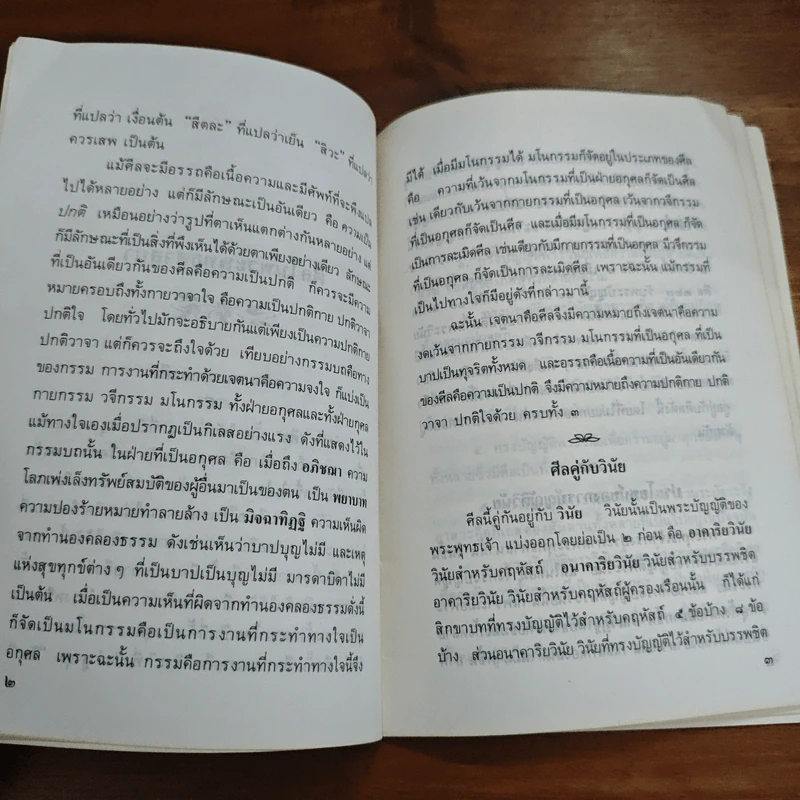 ที่แปลว่า เงื่อนต้น "สีตละ" ที่แปลว่าเย็น "สิวะ" ที่แปลว่า
ควรเสพ เป็นต้น
แม้ศีลจะมีอรรถคือเนื้อความและมีศัพท์ที่จะพึงแปล
ไปได้หลายอย่าง แต่ก็มีลักษณะเป็นอันเดียว คือ ความเป็น
ปกติ เหมือนอย่างว่ารูปที่ตาเห็นแตกต่างกันหลายอย่าง แต่
ก็มีลักษณะที่เป็นสิ่งที่พึงเห็นได้ด้วยตาเพียงอย่างเดียว ลักษณะ
ที่เป็นอันเดียวกันของศีลคือความเป็นปกติ ก็ควรจะมีความ
หมายครอบถึงทั้งกายวาจาใจ คือความเป็นปกติกาย ปกติวาจา
ปกติใจ โดยทั่วไปมักจะอธิบายกันแต่เพียงเป็นความปกติกาย
ปกติวาจา แต่ก็ควรจะถึงใจด้วย เทียบอย่างกรรมบถคือทาง
ของกรรม การงานที่กระทำด้วยเจตนาคือความจงใจ ก็แบ่งเป็น
กายกรรม วจีกรรม มโนกรรม ทั้งฝ่ายอกุศลและทั้งฝ่ายกุศล
แม้ทางใจเองเมื่อปรากฏเป็นกิเลสอย่างแรง ดังที่แสดงไว้ใน
กรรมบถนั้น ในฝ่ายที่เป็นอกุศล คือ เมื่อถึง อภิชฌา ความ
โลภเพ่งเล็งทรัพย์สมบัติของผู้อื่นมาเป็นของตน เป็น พยาบาท
ความปองร้ายหมายทำลายล้าง เป็น มิจฉาทิฏฐิ ความเห็นผิด
จากทำนองคลองธรรม ดังเช่นเห็นว่าบาปบุญไม่มี และเหตุ
แห่งสุขทุกข์ต่าง ๆ ที่เป็นบาปเป็นบุญไม่มี มารดาบิดาไม่มี
เป็นต้น เมื่อเป็นความเห็นที่ผิดจากทำนองคลองธรรมดั่งนี้
ก็จัดเป็นมโนกรรมคือเป็นการงานที่กระทำทางใจเป็น
อกุศล เพราะฉะนั้น กรรมคือการงานที่กระทำทางใจนี้จึง
๒
มีได้ เมื่อมีมโนกรรมได้ มโนกรรมก็จัดอยู่ในประเภทของศีล
คือ ความที่เว้นจากมโนกรรมที่เป็นฝ่ายอกุศลก็จัดเป็นศีล
เช่นเดียวกับเว้นจากกายกรรมที่เป็นอกุศล เว้นจากวจีกรรม
ที่เป็นอกุศลก็จัดเป็นศีล และเมื่อมีมโนกรรมที่เป็นอกุศล ก็จัด
เป็นการละเมิดศีล เช่นเดียวกับมีกายกรรมที่เป็นอกุศล มีวจีกรรม
ที่เป็นอกุศล ก็จัดเป็นการละเมิดศีล เพราะฉะนั้น แม้กรรมที่
เป็นไปทางใจก็มีอยู่ดังที่กล่าวมานี้
ฉะนั้น เจตนาคือศีลจึงมีความหมายถึงเจตนาคือความ
งดเว้นจากกายกรรม วจีกรรม มโนกรรมที่เป็นอกุศล ที่เป็น
บาปเป็นทุจริตทั้งหมด และอรรถคือเนื้อความที่เป็นอันเดียวกัน
ของศีลคือความเป็นปกติ จึงมีความหมายถึงความปกติกาย ปกติ
วาจา ปกติใจด้วย ครบทั้ง ๓
ศีลคู่กับวินัย
ศีลนี้คู่กันอยู่กับ วินัย วินัยนั้นเป็นพระบัญญัติของ
พระพุทธเจ้า แบ่งออกโดยย่อเป็น ๒ ก่อน คือ อาคาริยวินัย
วินัยสำหรับคฤหัสถ์ อนาคาริยวินัย วินัยสำหรับบรรพชิต
อาคาริยวินัย วินัยสำหรับคฤหัสถ์ผู้ครองเรือนนั้น ก็ได้แก่
สิกขาบทที่ทรงบัญญัติไว้สำหรับคฤหัสถ์ ๕ ข้อบ้าง ๘ ข้อ
บ้าง ส่วนอนาคาริยวินัย วินัยที่ทรงบัญญัติไว้สำหรับบรรพชิต
๓